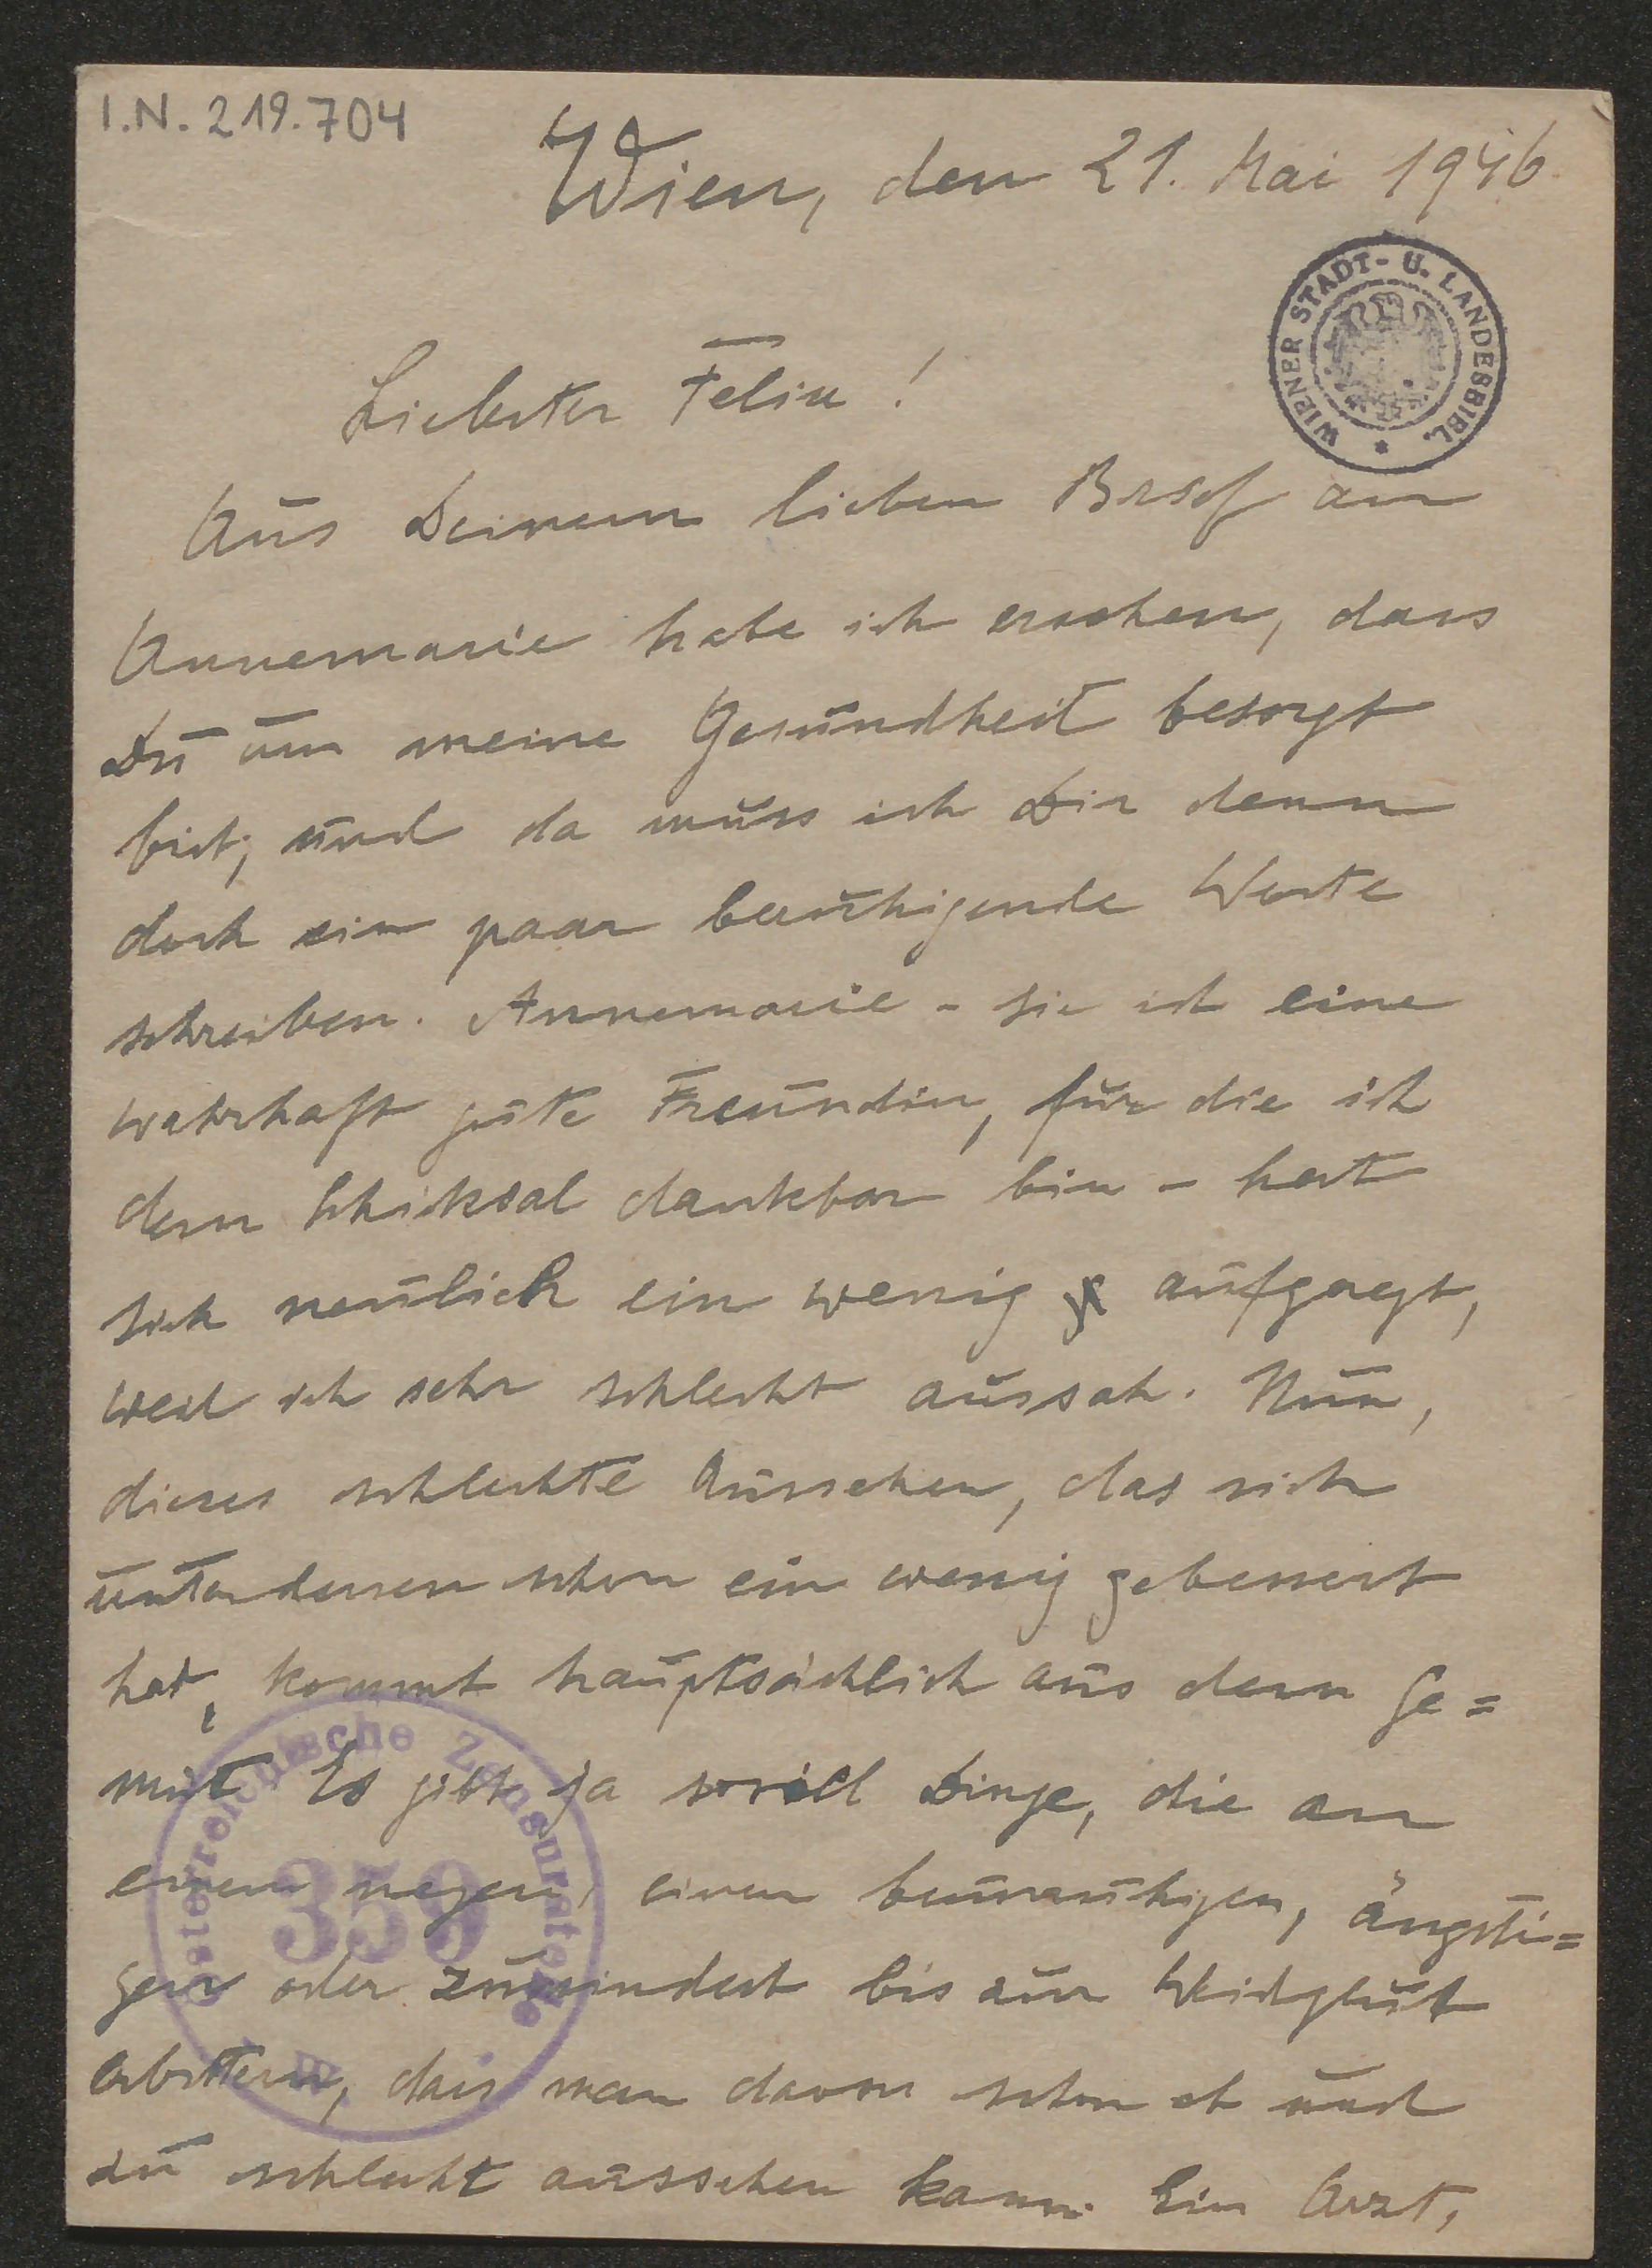 I.N. 219.704
Wien, den 21. Mai 1946
WIENER STADT- U. LANDESBIBL.
Liebster Felix!
Aus Deinem lieben Brief an
Annemarie habe ich ersehen, dass
Du um meine Gesundheit besorgt
bist, und da muss ich Dir denn
doch ein paar beruhigende Worte
schreiben. Annemarie - sie ist eine
wahrhaft gute Freundin, für die ich
dem Schicksal dankbar bin - hat
sich neulich ein wenig aufgeregt,
weil ich sehr schlecht aussah. Nun,
dieses schlechte Aussehen, das sich
unterdessen schon ein wenig gebessert
hat, kommt hauptsächlich aus dem Ge=
müt. Es gibt ja soviel Dinge, die an
einem nagen, einen beunruhigen, ängsti=
gen oder zumindest bis zur Weissglut
erbittern, dass man davon schon ab und
zu schlecht aussehen kann. Ein Arzt,
Österreichische Zensurstelle
359